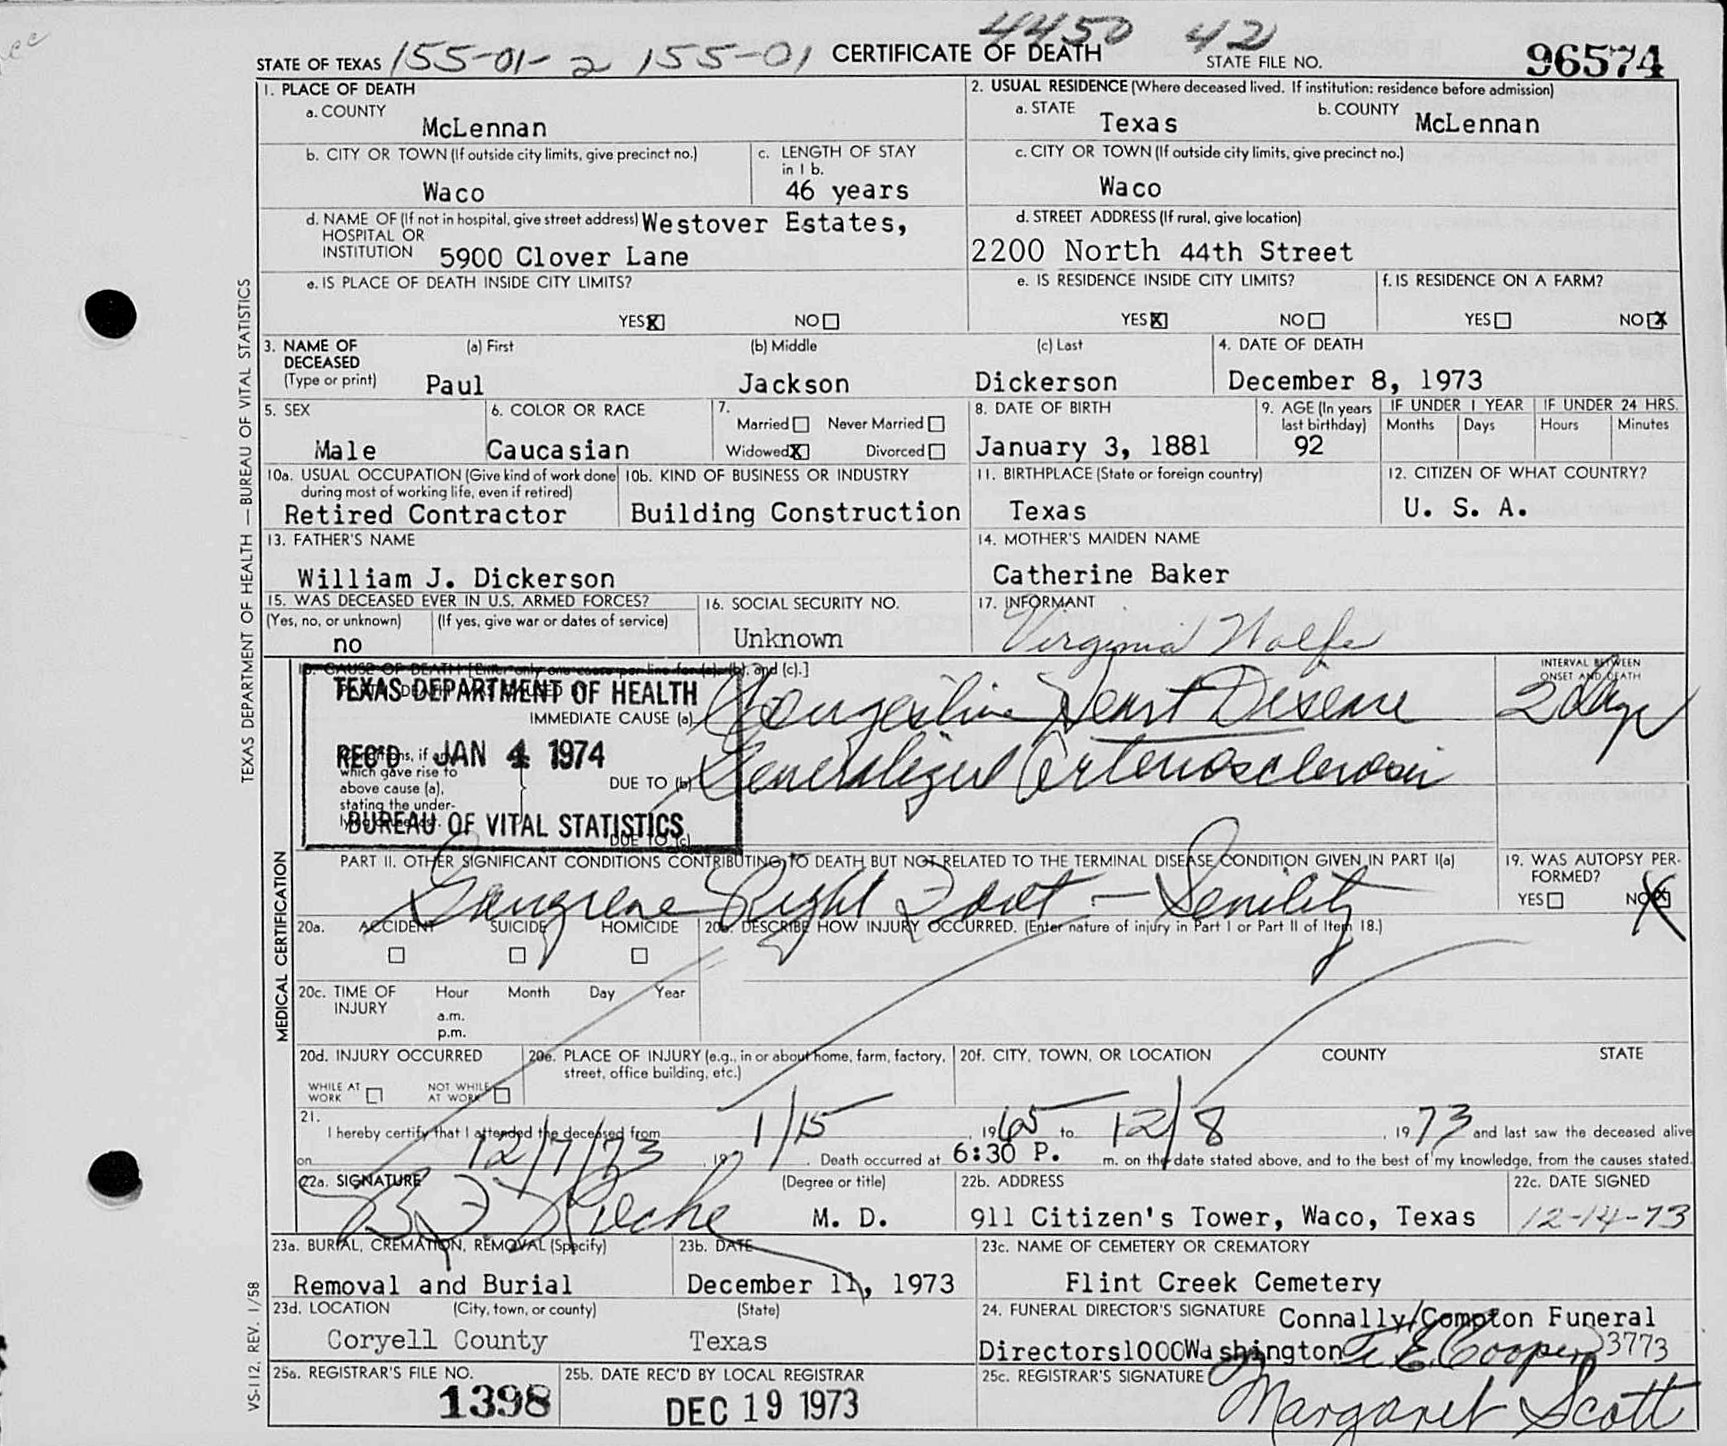 4450 42
STATE OF TEXAS 155-01-2 155-01 CERTIFICATE OF DEATH STATE FILE NO. 96574
1. PLACE OF DEATH
a. COUNTY
McLennan
2. USUAL RESIDENCE (Where deceased lived. If institution: residence before admission)
a. STATE Texas b. COUNTY McLennan
b. CITY OR TOWN (If outside city limits, give precinct no.)
Waco
c. LENGTH OF STAY in 1 b.
46 years
c. CITY OR TOWN (If outside city limits, give precinct no.)
Waco
d. NAME OF (If not in hospital, give street address) Westover Estates,
HOSPITAL OR
INSTITUTION 5900 Clover Lane
d. STREET ADDRESS (If rural, give location)
2200 North 44th Street
e. IS PLACE OF DEATH INSIDE CITY LIMITS?
YES X NO
e. IS RESIDENCE INSIDE CITY LIMITS?
YES X NO
f. IS RESIDENCE ON A FARM?
YES NO X
3. NAME OF DECEASED (Type or print)
(a) First (b) Middle (c) Last
Paul Jackson Dickerson
4. DATE OF DEATH
December 8, 1973
5. SEX
Male
6. COLOR OR RACE
Caucasian
7.
Married Never Married
Widowed X Divorced
8. DATE OF BIRTH
January 3, 1881
9. AGE (In years last birthday)
92
IF UNDER 1 YEAR
Months Days
IF UNDER 24 HRS.
Hours Minutes
10a. USUAL OCCUPATION (Give kind of work done during most of working life, even if retired)
Retired Contractor
10b. KIND OF BUSINESS OR INDUSTRY
Building Construction
11. BIRTHPLACE (State or foreign country)
Texas
12. CITIZEN OF WHAT COUNTRY?
U. S. A.
13. FATHER'S NAME
William J. Dickerson
14. MOTHER'S MAIDEN NAME
Catherine Baker
15. WAS DECEASED EVER IN U.S. ARMED FORCES?
(Yes, no, or unknown) (If yes, give war or dates of service)
no
16. SOCIAL SECURITY NO.
Unknown
17. INFORMANT
Virginia Wolfe
18. CAUSE OF DEATH [Enter only one cause per line for (a), (b), and (c).]
INTERVAL BETWEEN ONSET AND DEATH
TEXAS DEPARTMENT OF HEALTH
IMMEDIATE CAUSE (a) Congestive Heart Disease 2 days
REC'D JAN 4 1974
which gave rise to
above cause (a),
stating the under-
DUE TO (b) Generalized Arteriosclerosis
BUREAU OF VITAL STATISTICS
DUE TO (c)
PART II. OTHER SIGNIFICANT CONDITIONS CONTRIBUTING TO DEATH BUT NOT RELATED TO THE TERMINAL DISEASE CONDITION GIVEN IN PART I(a)
Gangrene Right Foot - Senility
19. WAS AUTOPSY PERFORMED?
YES NO X
20a. ACCIDENT SUICIDE HOMICIDE
20b. DESCRIBE HOW INJURY OCCURRED. (Enter nature of injury in Part I or Part II of Item 18.)
20c. TIME OF INJURY Hour Month Day Year
a.m.
p.m.
20d. INJURY OCCURRED
WHILE AT WORK NOT WHILE AT WORK
20e. PLACE OF INJURY (e.g., in or about home, farm, factory, street, office building, etc.)
20f. CITY, TOWN, OR LOCATION COUNTY STATE
21.
I hereby certify that I attended the deceased from 1/15, 1965 to 12/8, 1973 and last saw the deceased alive
on 12/7/73, 19 . Death occurred at 6:30 P. m. on the date stated above, and to the best of my knowledge, from the causes stated.
22a. SIGNATURE (Degree or title)
M. D.
22b. ADDRESS
911 Citizen's Tower, Waco, Texas
22c. DATE SIGNED
12-14-73
23a. BURIAL, CREMATION, REMOVAL (Specify)
Removal and Burial
23b. DATE
December 11, 1973
23c. NAME OF CEMETERY OR CREMATORY
Flint Creek Cemetery
23d. LOCATION (City, town, or county) (State)
Coryell County Texas
24. FUNERAL DIRECTOR'S SIGNATURE Connally/Compton Funeral
Directors1000Washington E. Cooper 3773
25a. REGISTRAR'S FILE NO.
1398
25b. DATE REC'D BY LOCAL REGISTRAR
DEC 19 1973
25c. REGISTRAR'S SIGNATURE
Margaret Scott
TEXAS DEPARTMENT OF HEALTH — BUREAU OF VITAL STATISTICS
MEDICAL CERTIFICATION
VS-112, REV. 1/58